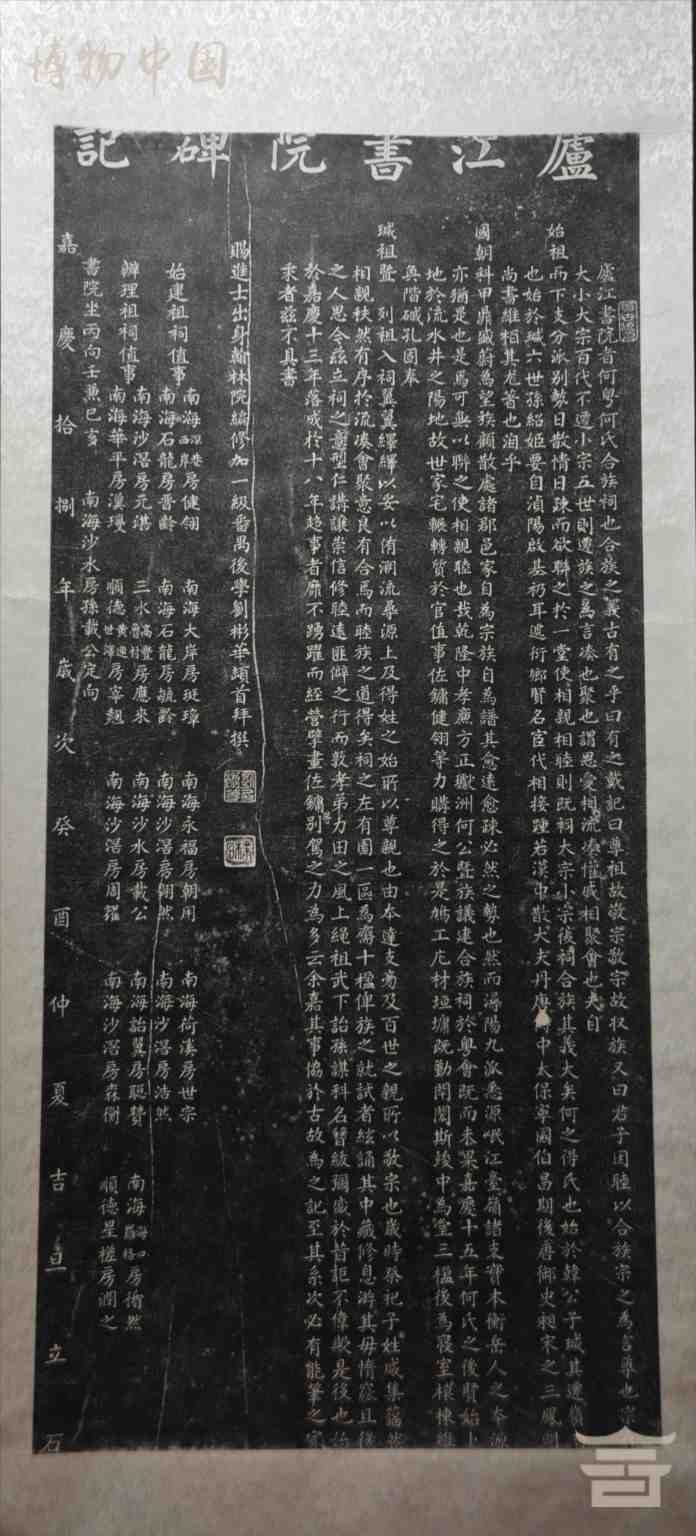 博物中国
廬江書院碑記
廬江書院者何粵何氏合族祠也合族之義古有之乎曰有之戴記曰尊祖故敬宗敬宗故收族又曰君子因睦以合族宗之為言尊也
大小大宗百代不遷小宗五世則遷族之為言湊也聚也謂恩愛相流湊懽戚相聚會也夫自
始祖而下支分派別勢日散情日疎而欲聯之於一堂使相親相睦則既祠大宗小宗後祠合族其義大矣何之得氏也始於韓公子瑊其遷嶺
也始於瑊六世孫紹姬要自湞陽啟基礽耳遞衍鄉賢名宦代相接踵若漢中散大夫丹唐 中太保寧國伯昌期後唐御史昶宋之三鳳明
尚書維栢其尤著也洎乎
國朝科甲鼎盛蔚為望族顧散處諸郡邑家自為宗族自為譜其愈遠愈疎必然之勢也然而潯陽九派悉源岷江臺嶺諸支實本衡岳人之本源
亦猶是也是焉可無以聯之使相親睦也哉乾隆中孝廉方正 洲何公暨族議建合族祠於粵會既而未果嘉慶十五年何氏之後賢始卜
地於流水井之陽地故世家宅輾轉質於官值事佐鏞健翎等力購得之於是鳩工庀材垣墉既勤閈閎斯竣中為堂三楹後為寢室樑棟維
奐階 孔固奉
瑊祖暨 列祖入祠翼翼繹繹以妥以侑溯流尋源上及得姓之始所以尊親也由本達支旁及百世之親所以敬宗也歲時祭祀子姓咸集藹然
相親秩然有序於流湊會聚意良有合焉而睦族之道得矣祠之左有園一區為齋十楹俾族之就試者絃誦其中藏修息游其毋惰窳且後
之人思今茲立祠之意型仁講讓崇信修睦遠匪僻之行而敦孝弟力田之風上繩祖武下詒孫謀科名簪紱彌盛於昔詎不偉歟是役也始
於嘉慶十三年落成於十八年趨事者靡不踴躍而經營擘畫佐鏞別駕之力為多云余嘉其事協於古故為之記至其系次必有能筆之家
乘者茲不具書
賜進士出身翰林院編修加一級番禺後學劉彬華頓首拜撰
始建祖祠值事 南海深巷西岸房健翎 南海大岸房珽璋 南海永福房朝用 南海荷溪房世宗
南海石龍房晋齡 南海石龍房毓齡 南海沙滘房翊然 南海沙滘房浩然
辦理祖祠值事 南海沙滘房元湛 三水高豐 房應來 南海沙水房載公 南海詒翼房聰贊 南海 房脩然
南海華平房漢璦 順德黃連 房宰翹 南海沙滘房周鑵 南海沙滘房森衡 順德星槎房潤之
書院坐丙向壬兼巳亥 南海沙水房孫載公定向
嘉慶拾捌年歲次癸酉仲夏吉旦立石